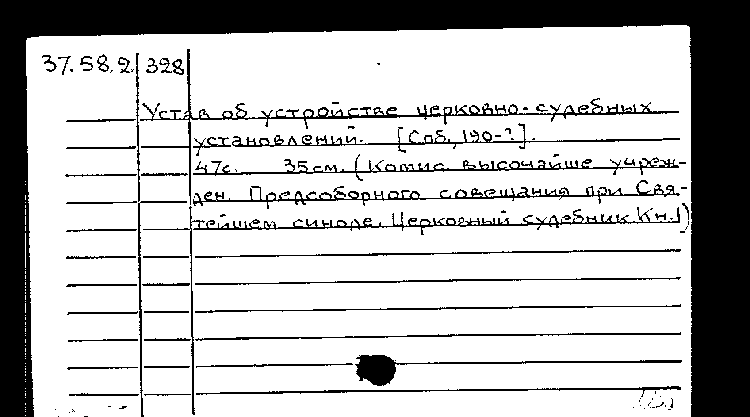 37.58.2 328
Устав об устройстве церковно-судебных
установлений. [Спб., 190-?].
47с. 35см. (Комис. высочайше учреж-
ден. Предсоборного совещания при Свя-
тейшем синоде. Церковный судебник Кн.1)